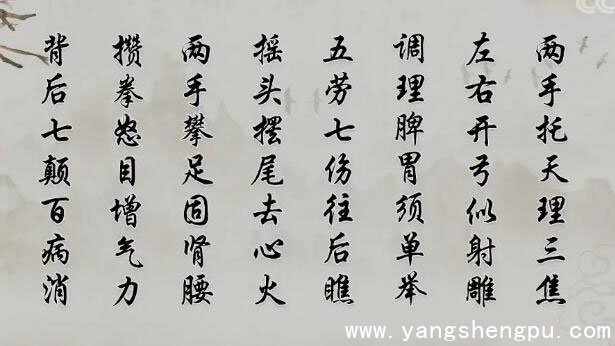 两手托天理三焦
左右开弓似射雕
调理脾胃须单举
五劳七伤往后瞧
摇头摆尾去心火
两手攀足固肾腰
攒拳怒目增气力
背后七颠百病消
www.yangshengpu.com